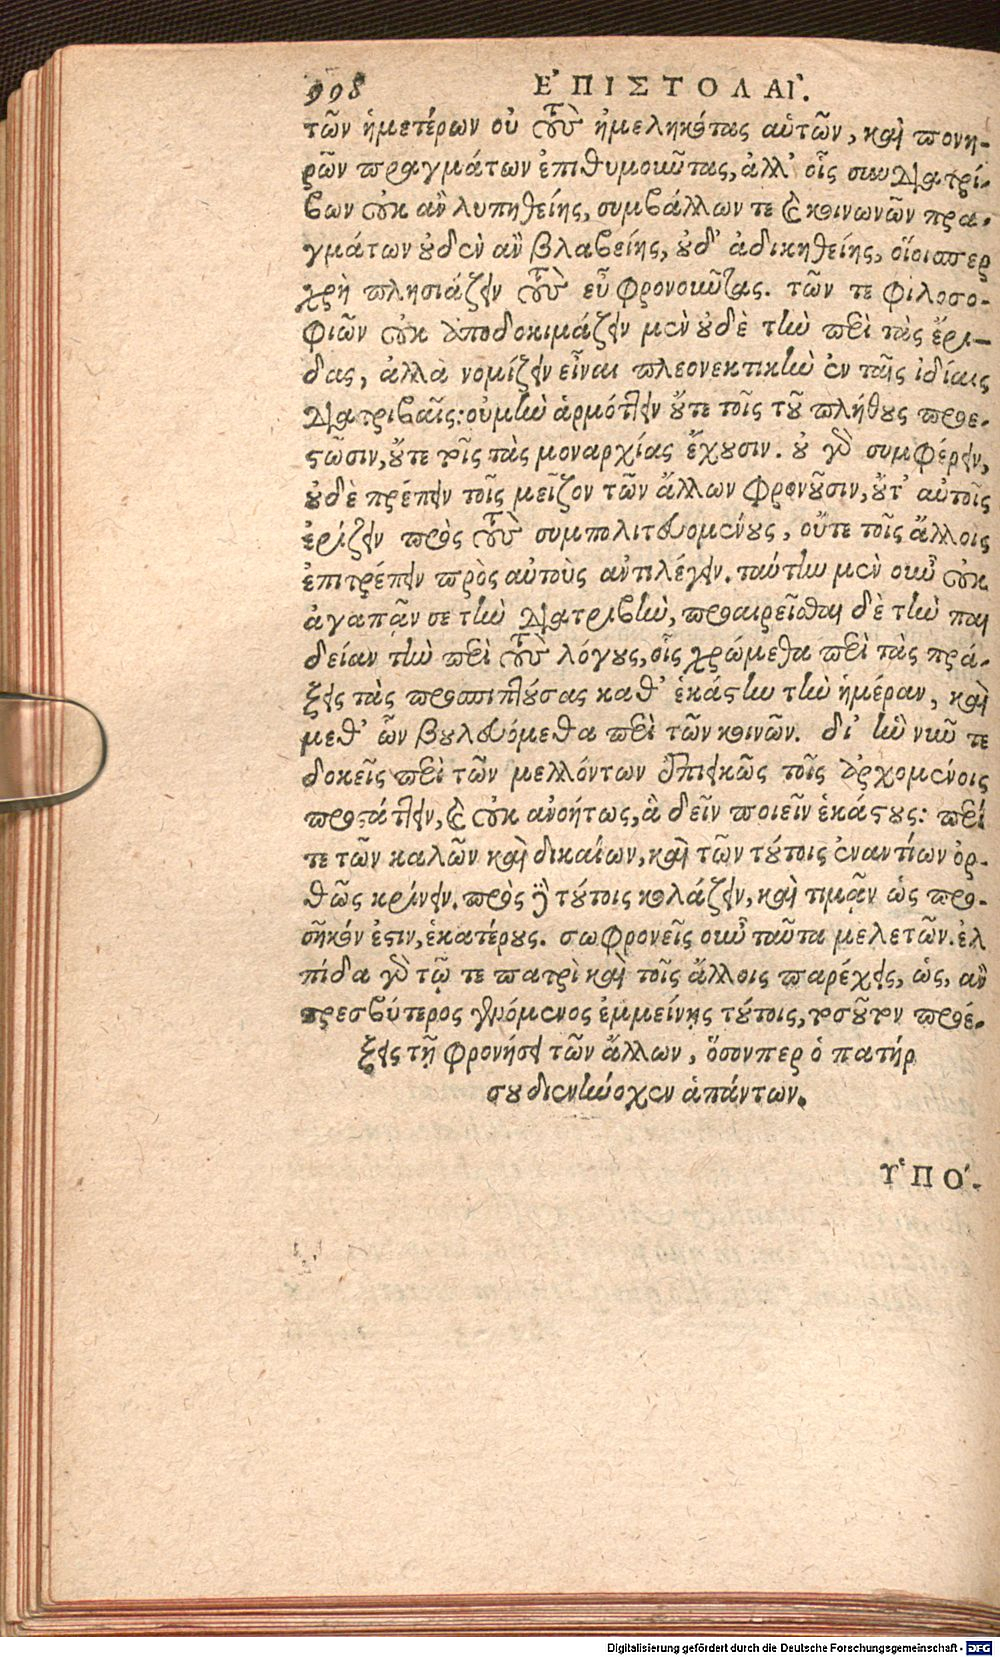 998 ἘΠΙΣΤΟΛΑΙ.
τῶν ἡμετέρων οὐ τοὺς ἠμεληκότας αὑτῶν, καὶ πονη-
ρῶν πραγμάτων ἐπιθυμοῦντας, ἀλλ' οἷς συνδιατρί-
βων οὐκ ἂν λυπηθείης, συμβάλλων τε καὶ κοινωνῶν πρα-
γμάτων οὐδὲν ἂν βλαβείης, οὐδ' ἀδικηθείης, οἵοισπερ
χρὴ πλησιάζειν τοὺς εὖ φρονοῦντας. τῶν τε φιλοσο-
φιῶν οὐκ ἀποδοκιμάζειν μὲν οὐδὲ τὴν περὶ τὰς ἔρι-
δας, ἀλλὰ νομίζειν εἶναι πλεονεκτικὴν ἐν ταῖς ἰδίαις
διατριβαῖς: οὐ μὴν ἁρμόττειν οὔτε τοῖς τοῦ πλήθους προε-
στῶσιν, οὔτε τοῖς τὰς μοναρχίας ἔχουσιν. οὐ γὰρ συμφέρειν,
οὐδὲ πρέπειν τοῖς μεῖζον τῶν ἄλλων φρονοῦσιν, οὔτ' αὐτοῖς
ἐρίζειν πρὸς τοὺς συμπολιτευομένους, οὔτε τοῖς ἄλλοις
ἐπιτρέπειν πρὸς αὐτοὺς ἀντιλέγειν. ταύτην μὲν οὖν οὐκ
ἀγαπᾷν σε τὴν διατριβὴν, προαιρεῖσθαι δὲ τὴν παι
δείαν τὴν περὶ τοὺς λόγους, οἷς χρώμεθα περὶ τὰς πρά-
ξεις τὰς προσπιπτούσας καθ' ἑκάστην τὴν ἡμέραν, καὶ
μεθ' ὧν βουλευόμεθα περὶ τῶν κοινῶν. δι' ἣν νῦν τε
δοκεῖς περὶ τῶν μελλόντων ἐπιεικῶς τοῖς ἀρχομένοις
προστάττειν, καὶ οὐκ ἀνοήτως, ἃ δεῖν ποιεῖν ἑκάστους: περί
τε τῶν καλῶν καὶ δικαίων, καὶ τῶν τούτοις ἐναντίων ὀρ-
θῶς κρίνειν. πρὸς δὲ τούτοις κολάζειν, καὶ τιμᾷν ὡς προ-
σῆκόν ἐστιν, ἑκατέρους. σωφρονεῖς οὖν ταῦτα μελετῶν. ἐλ
πίδα γὰρ τῷ τε πατρὶ καὶ τοῖς ἄλλοις παρέχεις, ὡς, ἂν
πρεσβύτερος γενόμενος ἐμμείνῃς τούτοις, τοσοῦτον προέ-
ξεις τῇ φρονήσει τῶν ἄλλων, ὅσονπερ ὁ πατήρ
σου διενήνοχεν ἁπάντων.
ὙΠΌ-
Digitalisierung gefördert durch die Deutsche Forschungsgemeinschaft - DFG